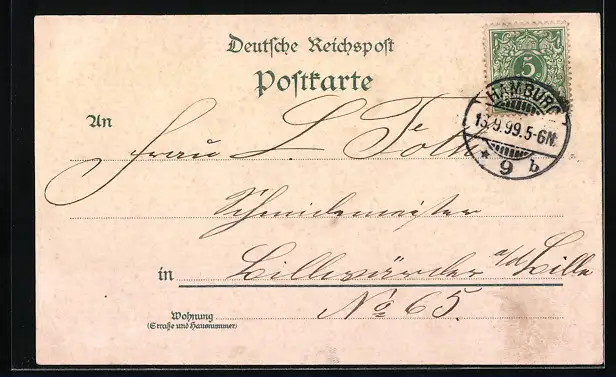 Deutsche Reichspost
Postkarte
5
HAMBURG
13.9.99.5-6N.
* 9 b
An Frau L.
Schmiedemeister
in Billwärder a/d Bille
No 65.
Wohnung
(Straße und Hausnummer)